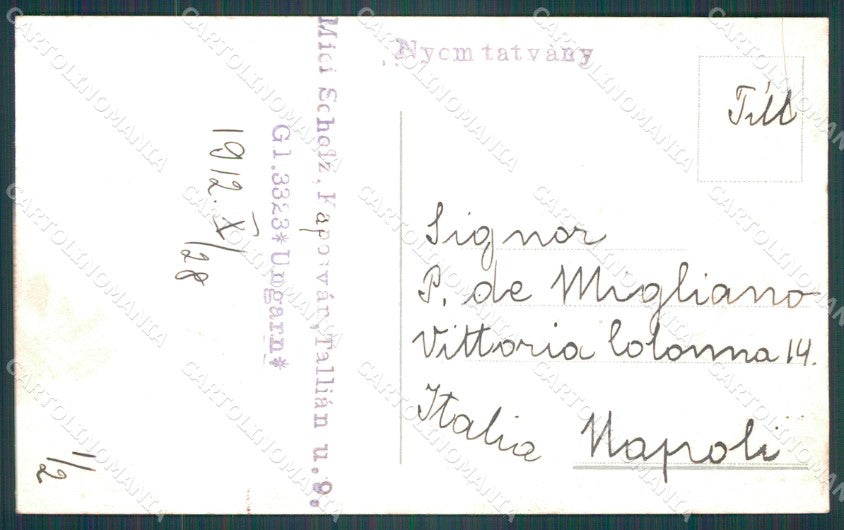 Nyomtatvány
Mici Scholz, Kaposvár, Tallián u. 9.
Gl. 3323*Ungarn*
1912. X/28
1/2
Signor
P. de Migliano
Vittoria Colonna 14.
Italia Napoli
CARTOLINOMANIA